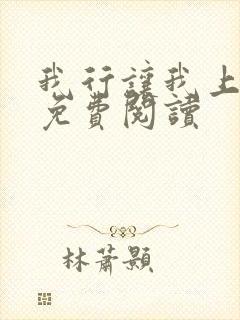 我行讓我上
免費閱讀
林蕭顥